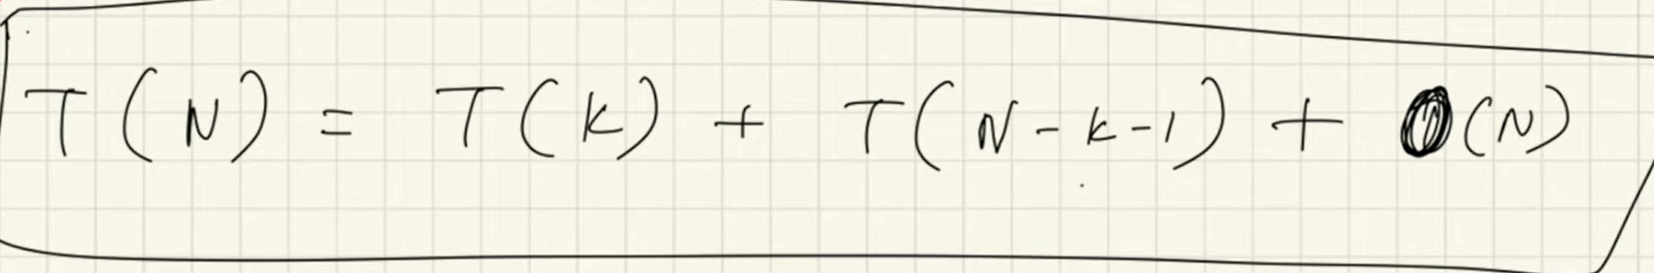 T(N) = T(k) + T(N-k-1) + O(N)